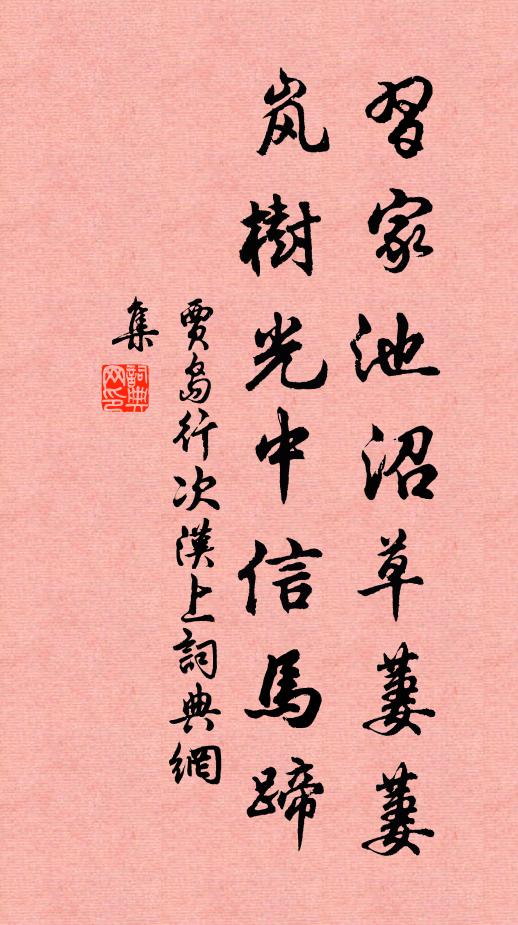 習家池沼草萋萋
岚樹光中信馬蹄
賈島行次漢上詞典網
集
詞典
网印